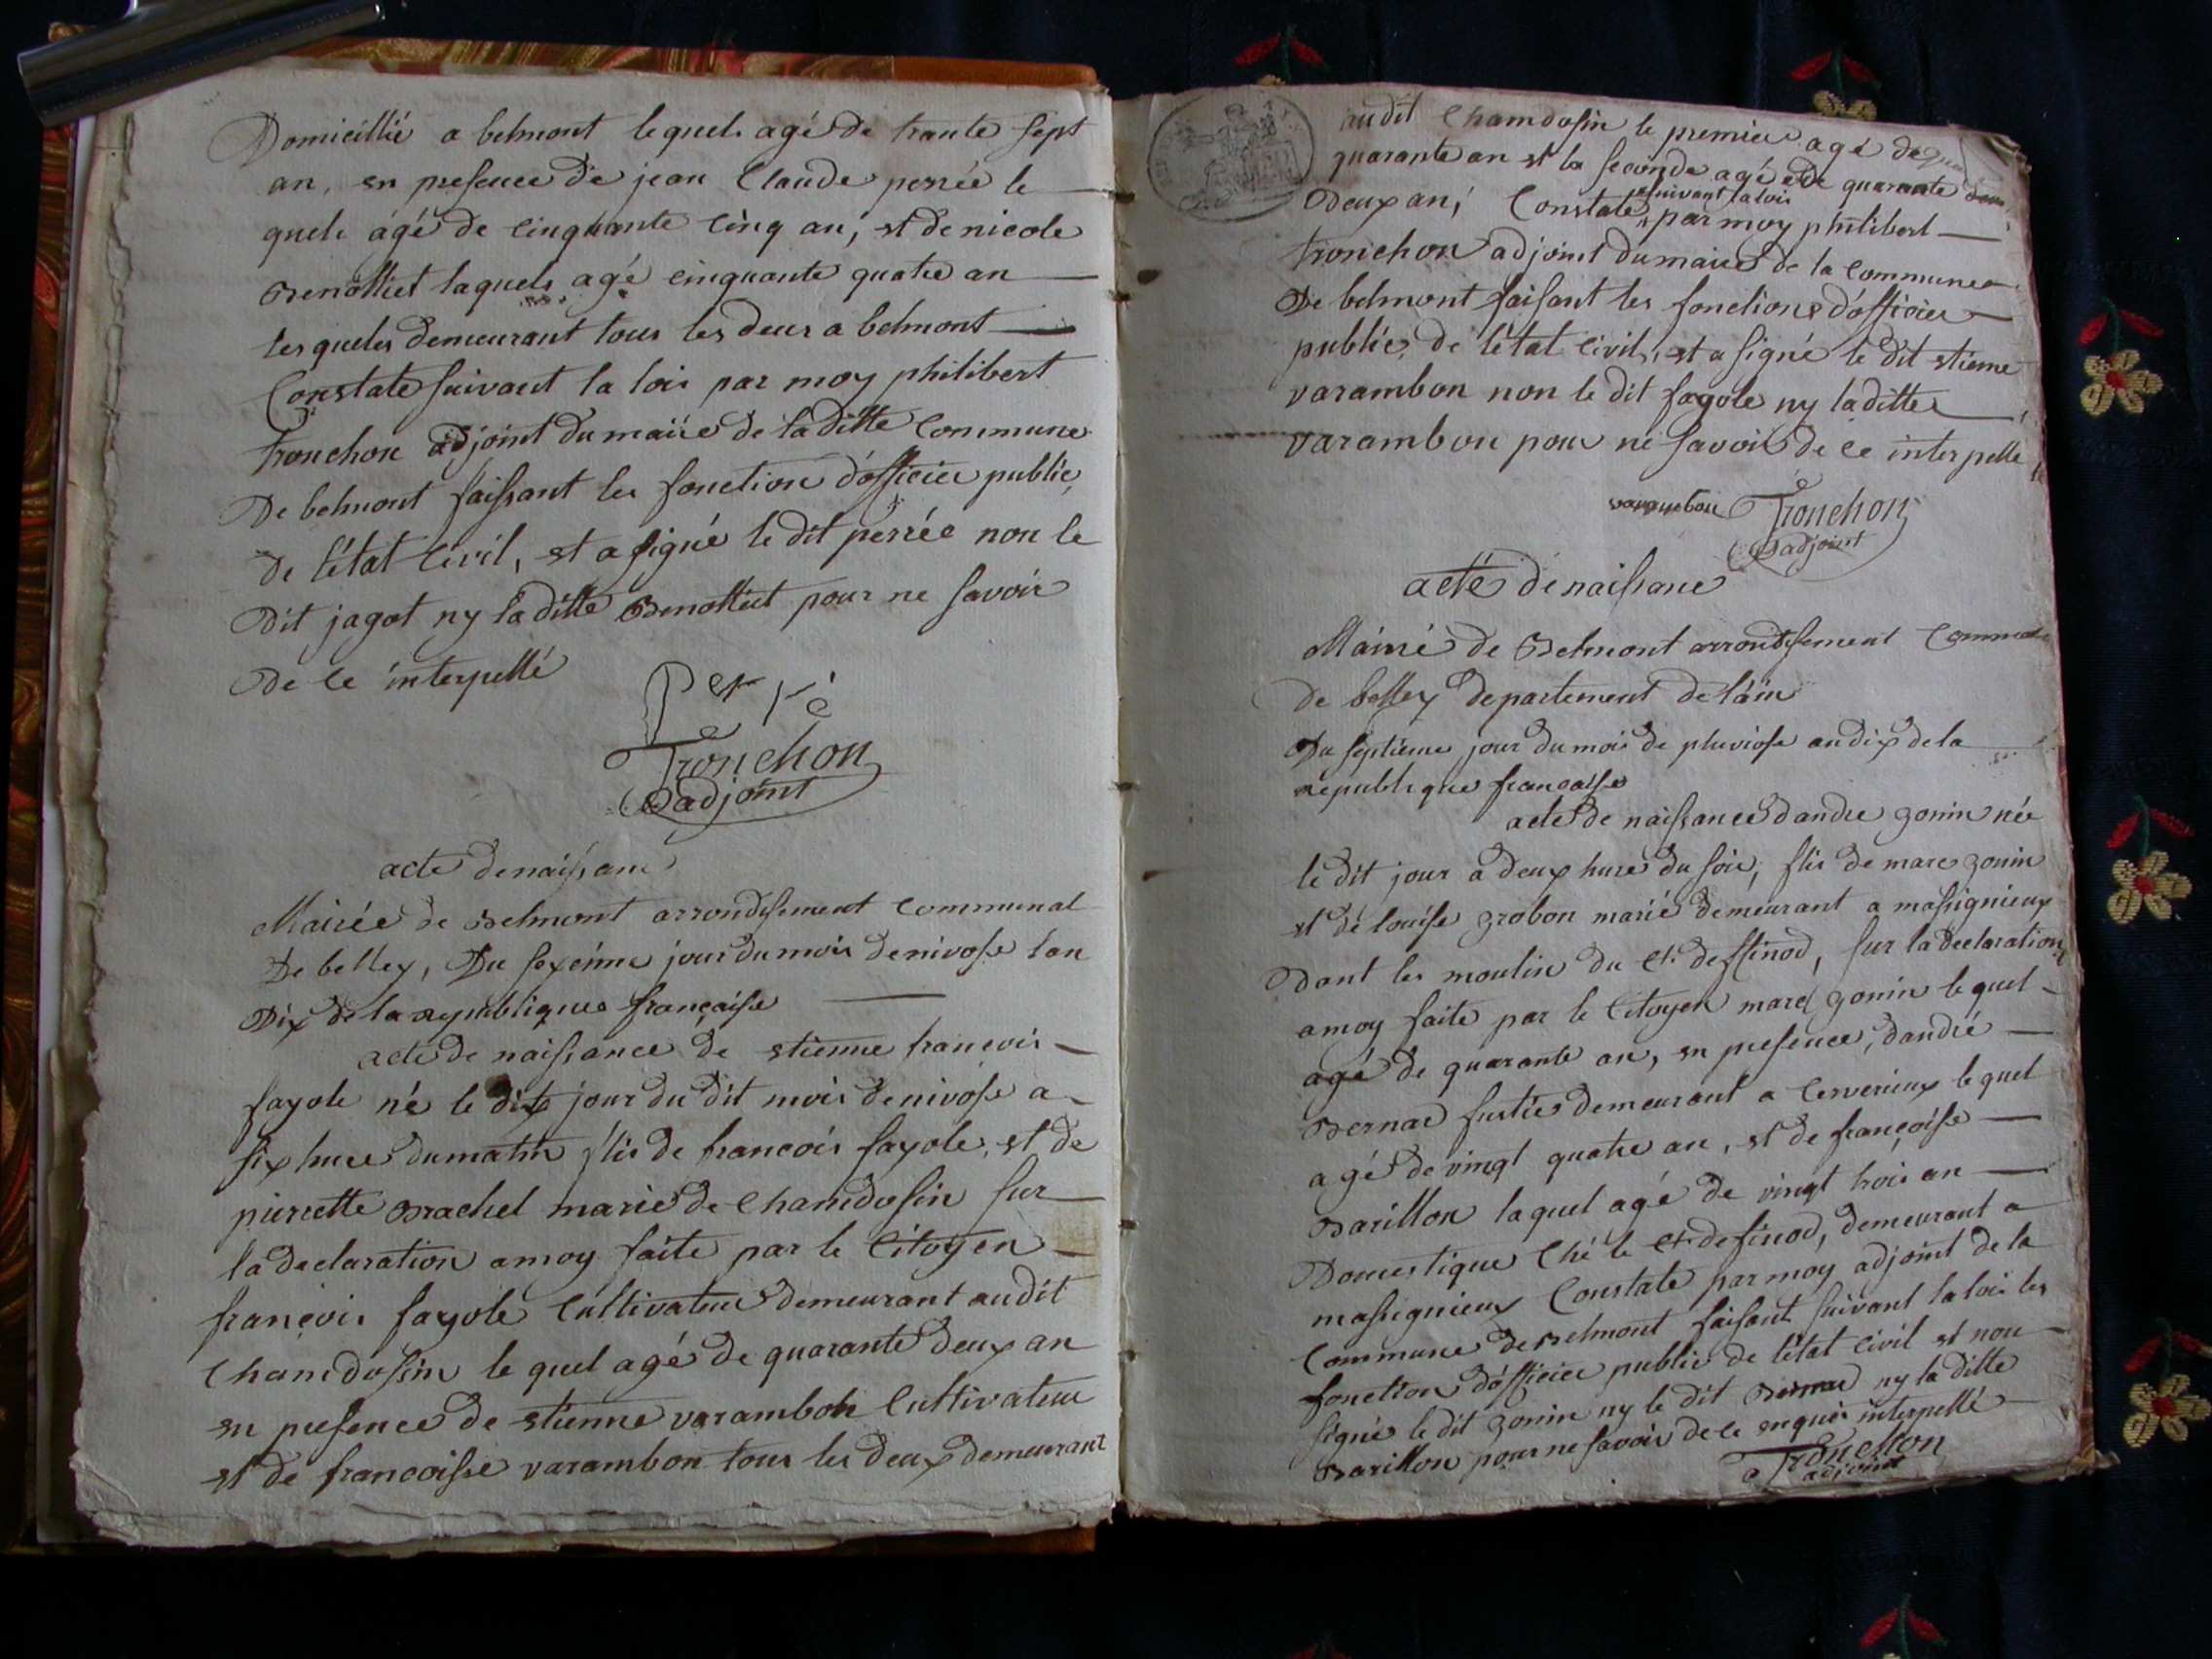 Domicillié a belmont lequel agé de trante sept
an, en presence de jean Claude perrée le
quel agé de cinquante cinq an, et de nicole
Benolliet laquele agé cinquante quatre an
les queles demeurant tous les deux a belmont
Constate suivant la loix par moy philibert
tronchon adjoint du maire de la ditte Commune
De belmont faissant les fonction d'officier public,
de l'état Civil, et a signé le dit perrée non le
dit jagot ny la ditte Benolliet pour ne savoir
de ce interpellé
Perré
Tronchon
adjoint
acte de naissance
Mairée de Belmont arrondissement Communal
De belley, Du sexéime jour du mois de nivosse l'an
Dix de la republique française
acte de naissance de etienne francois
fayole né le dit jour du dit mois de nivôse a
six hure du matin flis de francois fayole, et de
pierrette Brachet marié de Chamdosin sur
la declaration a moy faite par le Citoyen
françois fayole Cultivateur demeurant audit
Chamdosin le quel agé de quarante deux an
en presence de etienne varambon Cultivateur
et de francoisse varambon tous les deux demeurant
audit Chamdosin le premier agé de
quarante an et la seconde agé de quarante
Deux an, Constate suivant la loix par moy philibert
tronchon adjoint du maire de la Commune
De belmont faisant les fonctions d'officier
public, de l'état Civil, et a signé le dit etienne
varambon non le dit fayole ny la ditte
varambon pour ne savoir de ce interpelle
varambon Tronchon
adjoint
acté de naissance
Mairié de Belmont arrondissement
de belley departement de l'ain
Du septieme jour du mois de pluviosse an dix de la
republique francaisse
acte de naissance d'andre gonin née
le dit jour a deux hure du soir, flis de marc gonin
et de louisse grobon marié demeurant a massignieux
Dant les moulin du Ct. deffinod, sur la declaration
a moy faite par le Citoyen marc gonin le quel
agé de quarante an, en presence, d'andré
Bernar fustier demeurant a Cerverieux le quel
agé de vingt quatre an, et de françoisse
Barillon laquel agé de vingt trois an
Domestique Ché le Ct. definod, demeurant a
massignieux Constate par moy adjoint de la
Commune de Belmont faisant suivant la loix les
fonction d'officier public de l'état Civil et non
signé le dit gonin ny le dit Bernar ny la ditte
Barillon pour ne savoir de ce enquis interpellé
Tronchon
adjoint